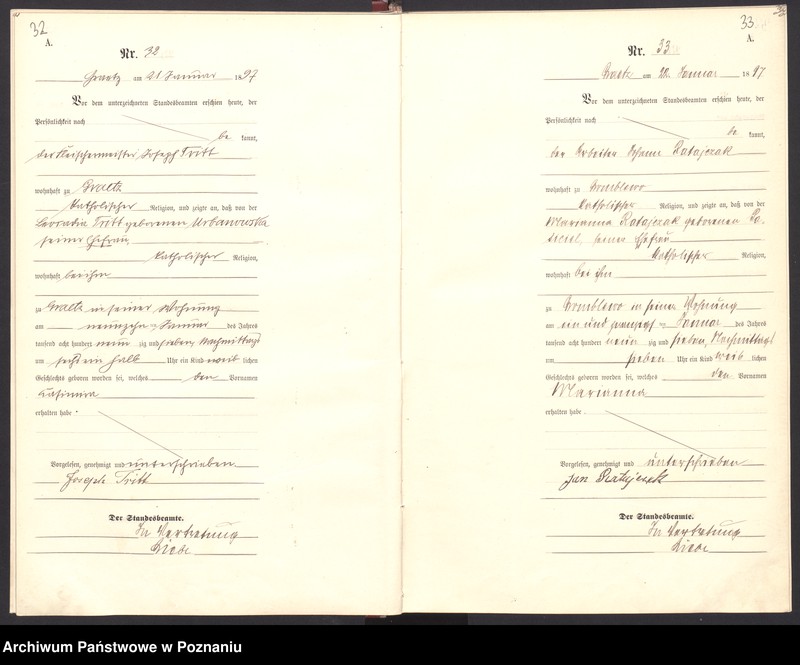 32
A.
Nr. 32
Graetz am 21 Januar 1897
Vor dem unterzeichneten Standesbeamten erschien heute, der
Persönlichkeit nach
be kannt,
der Fleischermeister Joseph Tritt
wohnhaft zu Graetz
katholischer Religion, und zeigte an, daß von der
Leocadia Tritt geborenen Urbanowska
seiner Ehefrau
katholischer Religion,
wohnhaft bei ihm
zu Graetz in seiner Wohnung
am neunzehn ten Januar des Jahres
tausend acht hundert neun zig und sieben, Nachmittags
um sechs ein halb Uhr ein Kind weib lichen
Geschlechts geboren worden sei, welches den Vornamen
Kasimira
erhalten habe.
Vorgelesen, genehmigt und unterschrieben
Joseph Tritt
Der Standesbeamte.
In Vertretung
33
A.
Nr. 33
Graetz am 22 Januar 1897
Vor dem unterzeichneten Standesbeamten erschien heute, der
Persönlichkeit nach
be kannt,
der Arbeiter Johann Ratajczak
wohnhaft zu
katholischer Religion, und zeigte an, daß von der
Marianna Ratajczak geborenen
seiner Ehefrau
katholischer Religion,
wohnhaft bei ihm
zu in seiner Wohnung
am ein und zwanzigsten Januar des Jahres
tausend acht hundert neun zig und sieben, Nachmittags
um sieben Uhr ein Kind weib lichen
Geschlechts geboren worden sei, welches den Vornamen
Marianna
erhalten habe.
Vorgelesen, genehmigt und unterschrieben
Jan Ratajczak
Der Standesbeamte.
In Vertretung
Archiwum Państwowe w Poznaniu